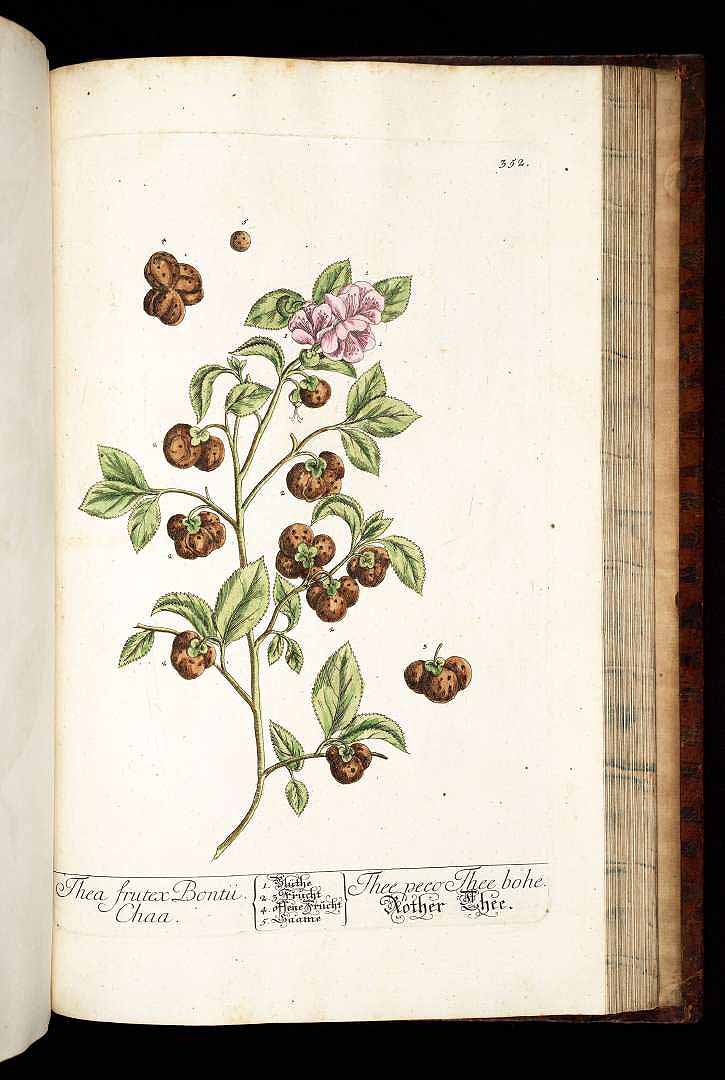 352.
4
5
1
1
1
1
2
2
2
2
2
3
Thea frutex Bontii.
Chaa.
1. Blüthe
2. 3 Frücht
4. offene Frücht
5. Saame
Thee peco Thee bohe.
Rother Thee.